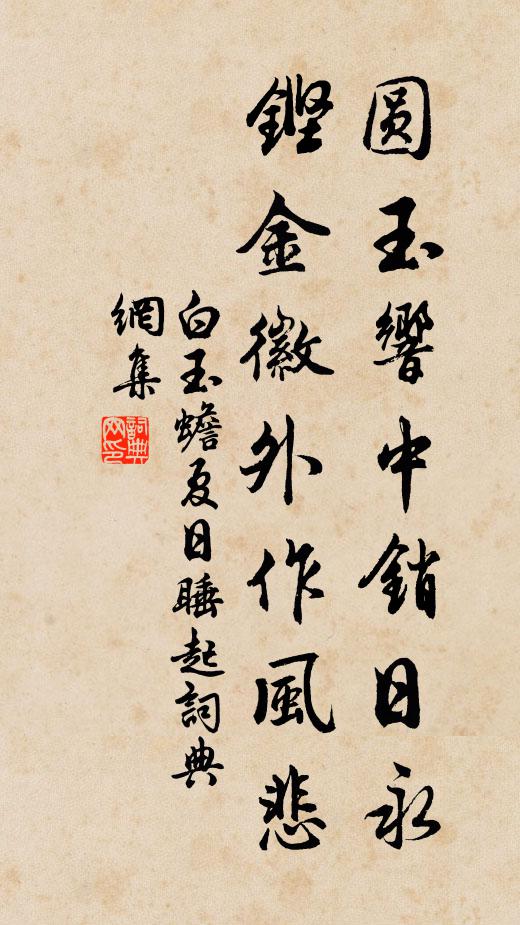 圆玉響中銷日永
鏗金徽外作風悲
白玉蟾夏日睡起詞典
網集
詞典
网印